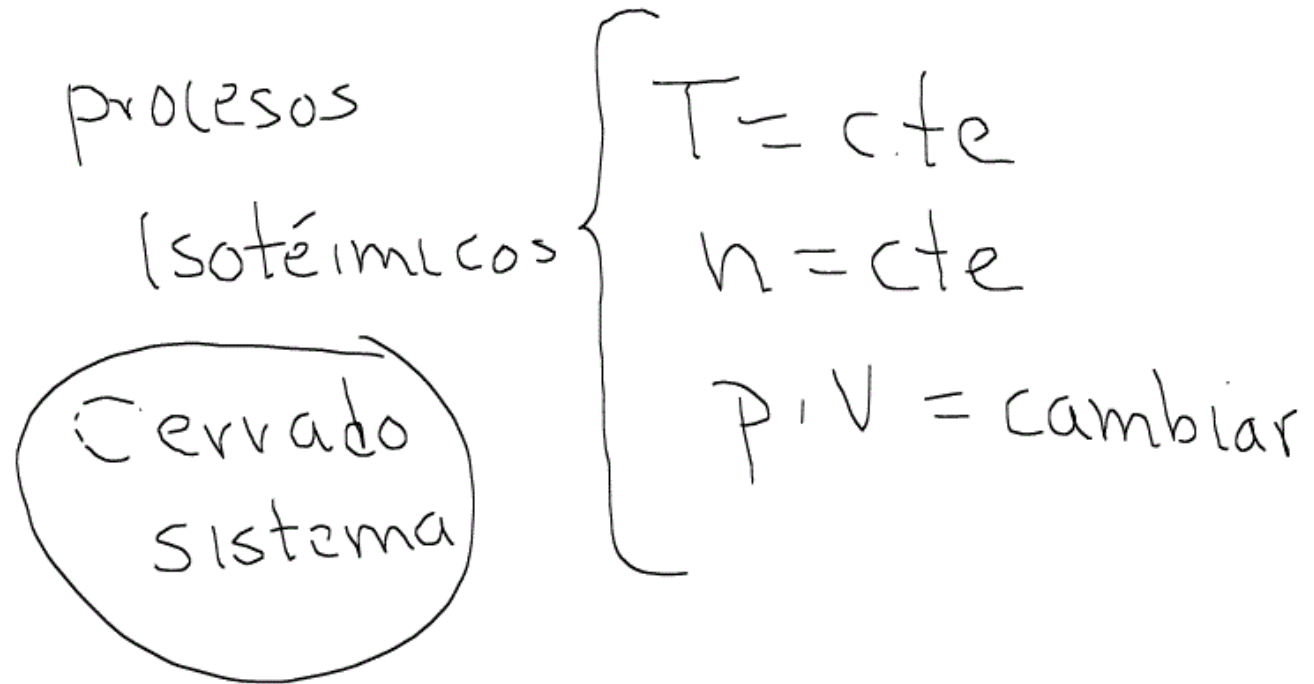 procesos
Isotérmicos
Cerrado
sistema
T = cte
n = cte
P, V = cambiar